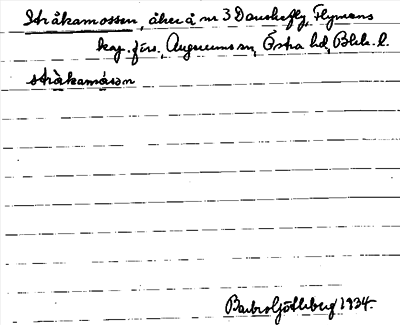 Stråkamossen, åker å nr 3 Danskefly, Flymens
kap. förs., Augerums sn, Östra hd, Blek. l.
stråkamåsən
Barbro Götlberg 1934.